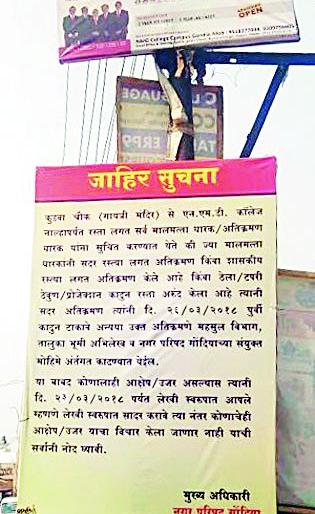 NMD College Campus Gondia
OPEN
LANGUAGE
TA
ERP9
जाहिर सुचना
कुडवा चौक (गायत्री मंदिर) से एन.एम.डी. कॉलेज
नाल्हापर्यंत रस्ता लगत सर्व मालमत्ता धारक/अतिक्रमण
धारक यांना सुचित करण्यात येते की ज्या मालमत्ता
धारकांनी सदर रस्त्या लगत अतिक्रमण किंवा शासकीय
रस्त्या लगत अतिक्रमण केले आहे किंवा ठेला/टपरी
ठेवुण/प्रोजेक्शन काढुन रस्ता अरुंद केला आहे त्यांनी
सदर अतिक्रमण त्यांनी दि. २६/०३/२०१८ पुर्वी
काढुन टाकावे अन्यथा उक्त अतिक्रमणे महसुल विभाग,
तालुका भूमी अभिलेख व नगर परिषद गोंदियाच्या संयुक्त
मोहिमे अंतर्गत काढण्यात येईल.
या बाबद कोणालाही आक्षेप/उजर असल्यास त्यांनी
दि. २३/०३/२०१८ पर्यंत लेखी स्वरुपात आपले
म्हणणे लेखी स्वरुपात सादर करावे त्या नंतर कोणाचेही
आक्षेप/उजर याचा विचार केला जाणार नाही याची
सर्वांनी नोद घ्यावी.
मुख्य अधिकारी
नगर परिषद गोंदिया